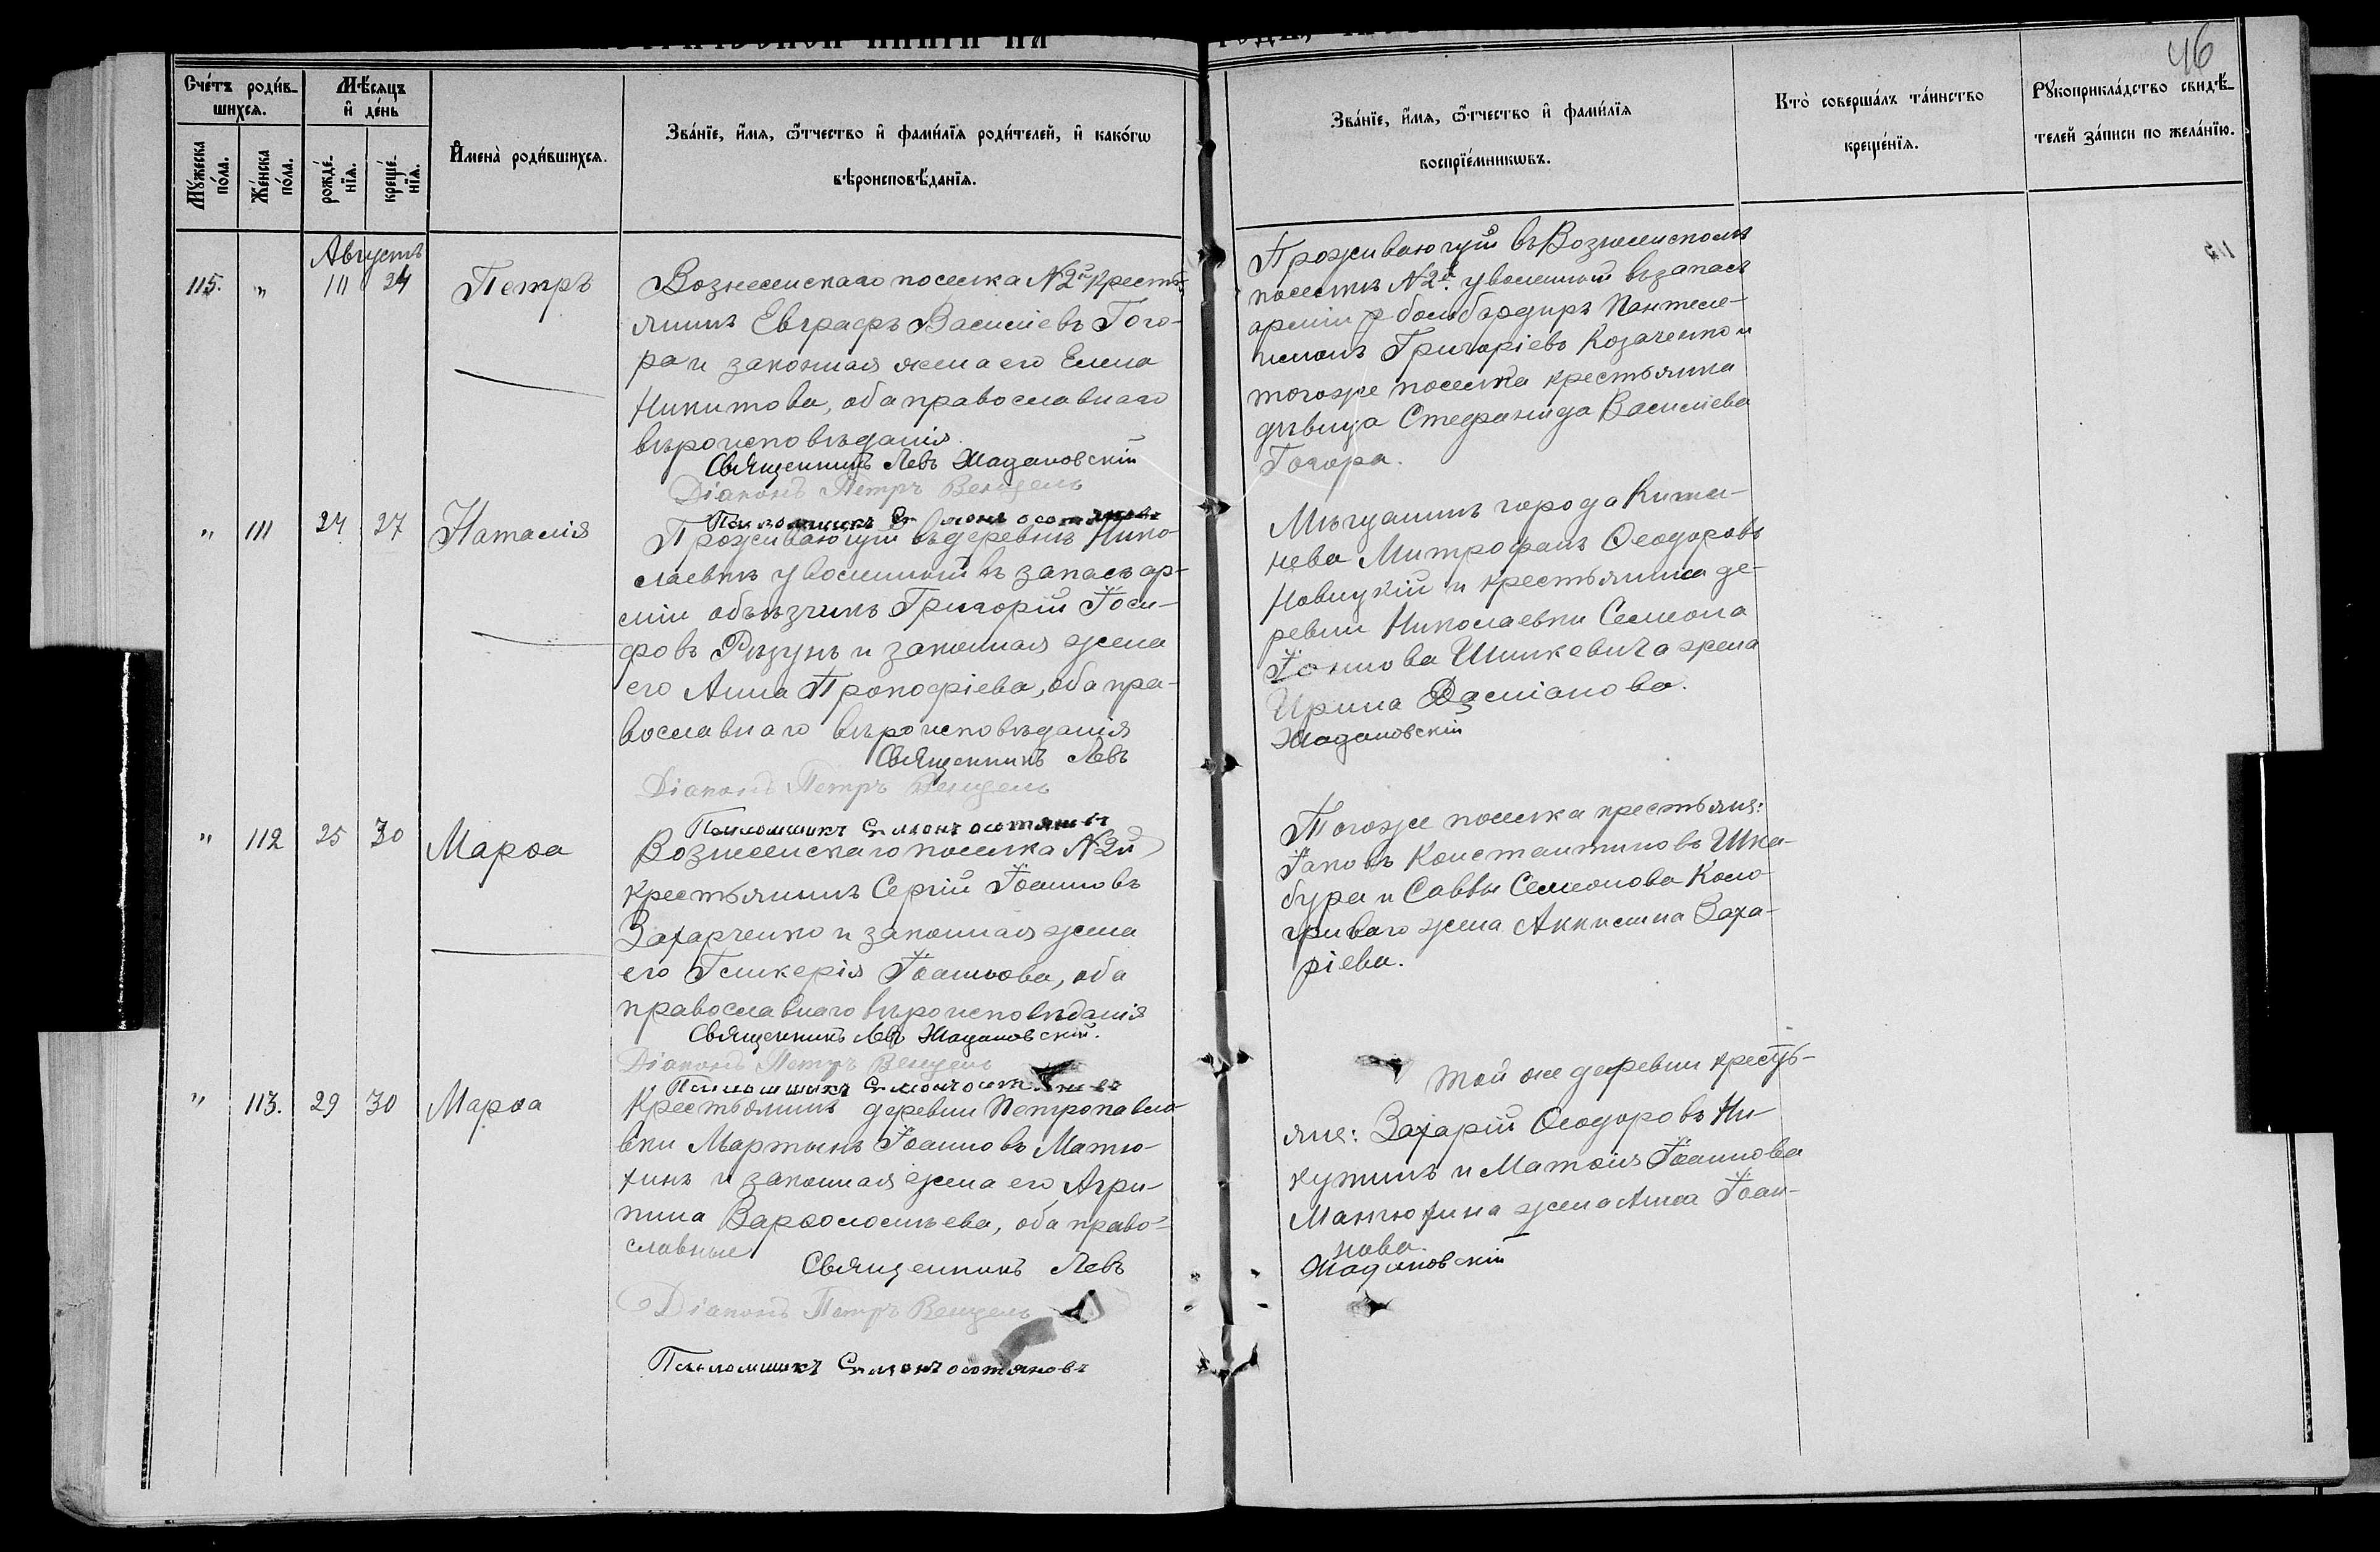 46
Счетъ родив-
шихся.
Мѣсяцъ
и день
Имена родившихся.
Званіе, имя, отчество и фамилія родителей, и какого
вѣроисповѣданія.
Званіе, имя, отчество и фамилія
воспріемниковъ.
Кто совершалъ таинство
крещенія.
Рукоприкладство свидѣ-
телей записи по желанію.
Мужеска
пола.
Женска
пола.
рожде-
нія.
креще-
нія.
Августъ
115. " 24 Петръ
Вознесенскаго поселка №2й крестья-
янинъ Евграфъ Василіевъ Гого-
ра и законная жена его Елена
Никитова, оба православнаго
вѣроисповѣданія.
Священникъ Левъ Жадановскій
Діаконъ Петръ Венцель
Псаломщикъ
Проживающій въ Вознесенскомъ
поселкѣ №2й уволенный въ запасъ
арміи бомбардиръ Пантеле-
имонъ Григоріевъ Козаченко и
тогоже поселка крестьянка
дѣвица Стефанида Василіева
Гогора.
" 111 24 27 Наталія
Проживающій въ деревнѣ Нико-
лаевкѣ уволенный въ запасъ ар-
міи объѣзчикъ Григорій Іоси-
фовъ Рѣзунъ и законная жена
его Анна Прокофіева, оба пра-
вославнаго вѣроисповѣданія
Священникъ Левъ
Жадановскій
Діаконъ Петръ Венцель
Псаломщикъ
Мѣщанинъ города Кише-
нева Митрофанъ Ѳеодоровъ
Новицкій и крестьянина де-
ревни Николаевки Семиона
Іоанова Шинкевича жена
Ирина Даміанова.
" 112 25 30 Марѳа
Вознесенскаго поселка №2й
крестьянинъ Сергій Іоанновъ
Захарченко и законная жена
его Гликерія Іоаннова, оба
православнаго вѣроисповѣданія
Священникъ Левъ Жадановскій.
Діаконъ Петръ Венцель
Псаломщикъ
Тогоже поселка крестьяне:
Іаковъ Константиновъ Шка-
бура и Саввы Семионова Коло-
гриваго жена Акилина Заха-
ріева.
" 113. 29 30 Марѳа
Крестьянинъ деревни Петропавло-
вки Мартынъ Іоанновъ Матю-
хинъ и законная жена его Агри-
пина Варѳоломѣева, оба право-
славные
Священникъ Левъ
Жадановскій
Діаконъ Петръ Венцель
Псаломщикъ
Той же деревни кресть-
яне: Захарій Ѳеодоровъ Ни-
кутинъ и Матѳія Іоаннова
Матюхина жена Анна Іоан-
нова.